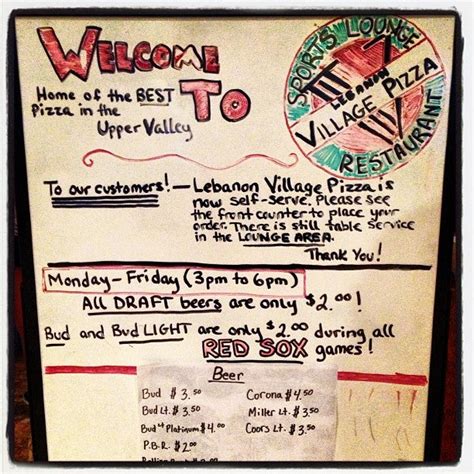 WELCOME
TO
Home of the BEST
Pizza in the
Upper Valley
SPORTS LOUNGE
LEBANON
VILLAGE PIZZA
RESTAURANT
To our customers! - Lebanon Village Pizza is
now self-serve. Please see
the front counter to place your
order. There is still table service
in the LOUNGE AREA.
Thank You!
Monday - Friday (3pm to 6pm)
All DRAFT beers are only $2.00!
Bud and Bud LIGHT are only $2.00 during all
RED SOX games!
Beer
Bud $3.50
Bud Lt. $3.50
Bud Lt Platinum $4.00
P.B.R. $2.00
Corona $4.50
Miller Lt. $3.50
Coors Lt. $3.50